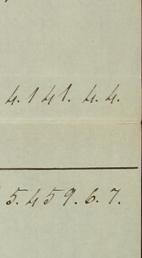 4.141.4.4.
5.459.6.7.